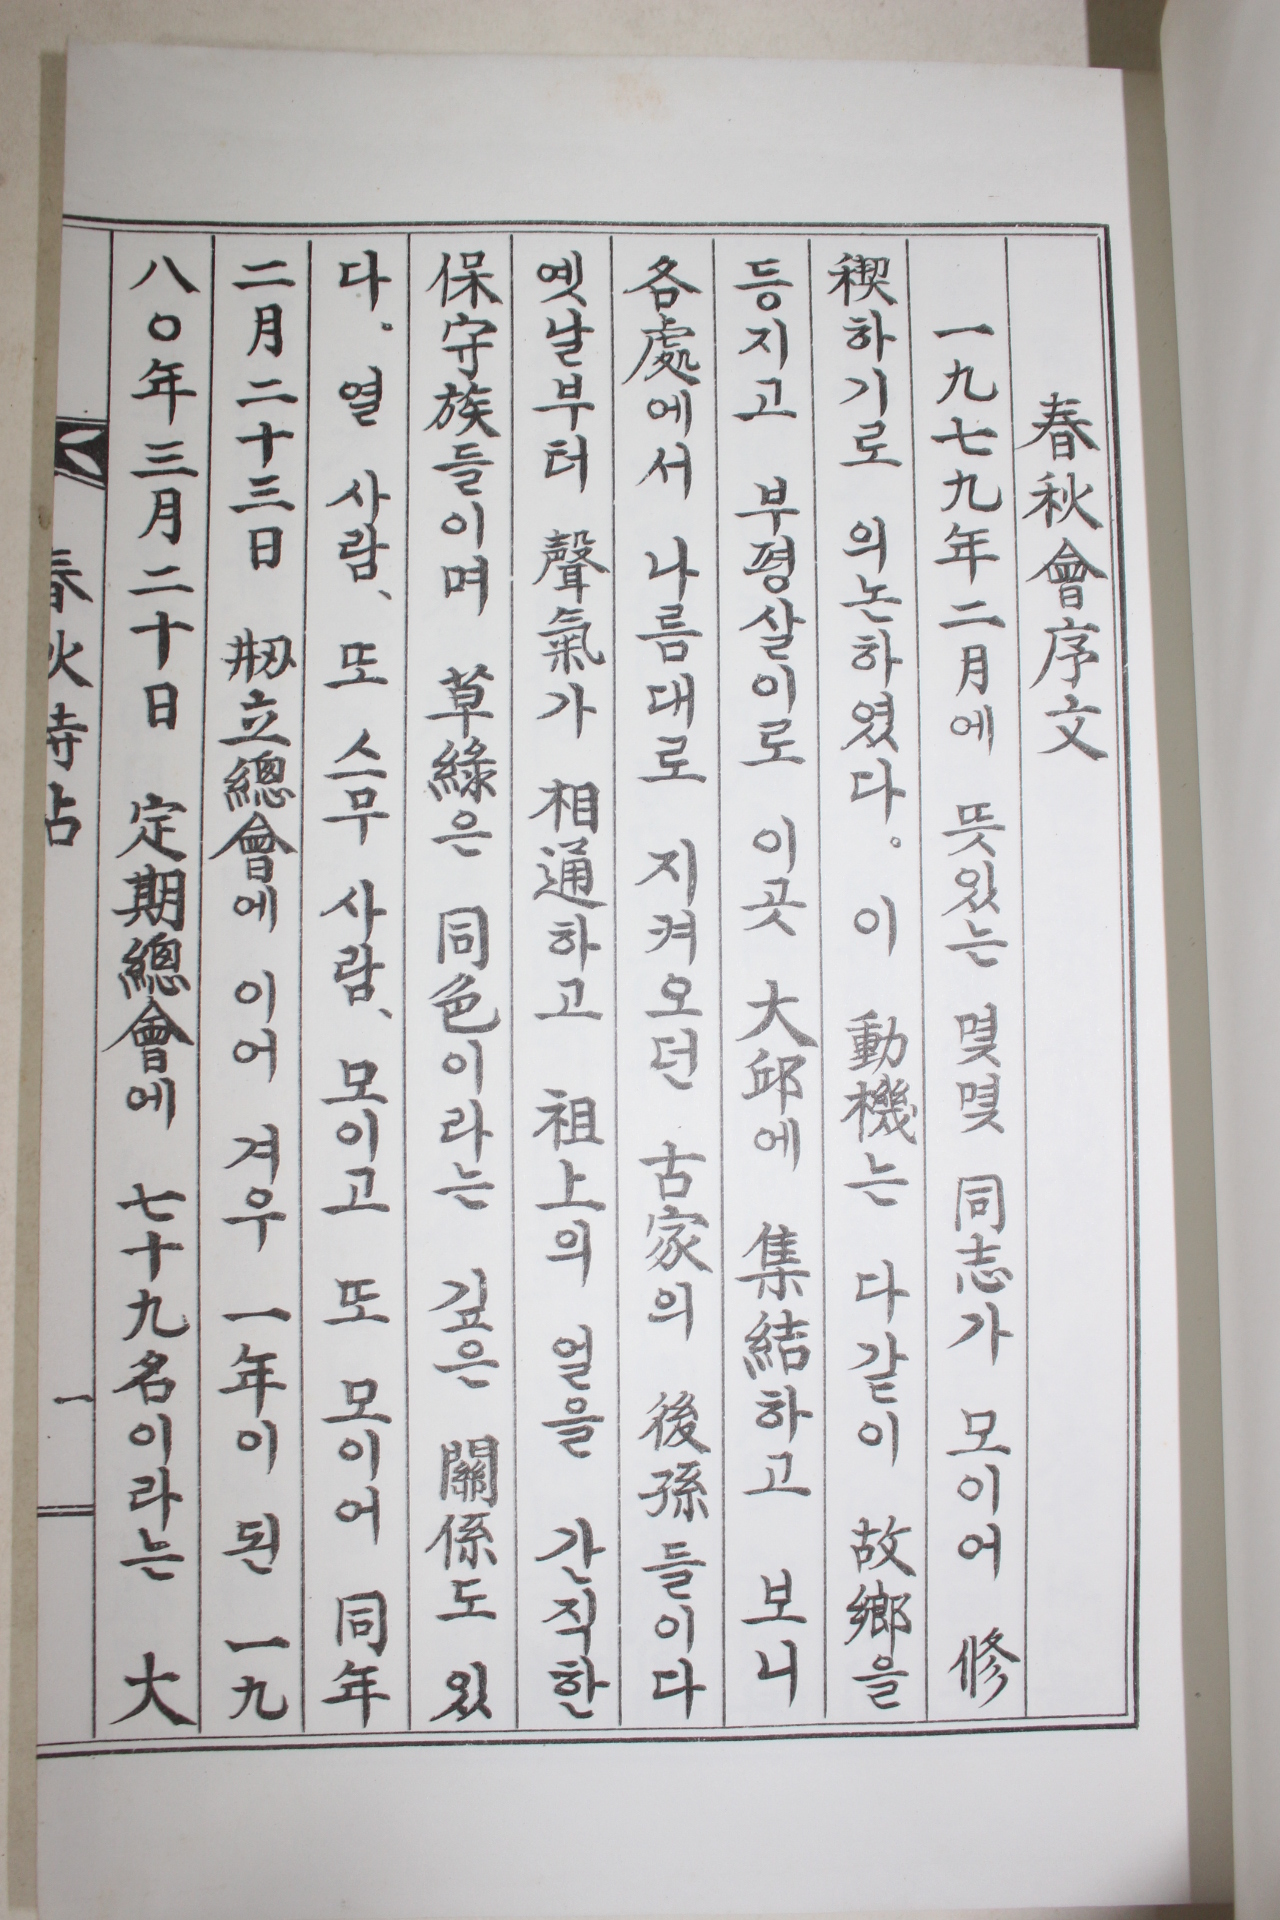 春秋會序文
一九七九年二月에 뜻있는 몇몇 同志가 모이어 修
稧하기로 의논하였다。이 動機는 다같이 故鄉을
등지고 부평살이로 이곳 大邱에 集結하고 보니
各處에서 나름대로 지켜오던 古家의 後孫들이다
옛날부터 聲氣가 相通하고 祖上의 얼을 간직한
保守族들이며 草綠은 同色이라는 깊은 關係도 있
다。열 사람、또 스무 사람、모이고 또 모이어 同年
二月二十三日 刱立總會에 이어 겨우 一年이 된 一九
八〇年三月二十日 定期總會에 七十九名이라는 大
春秋時帖
一